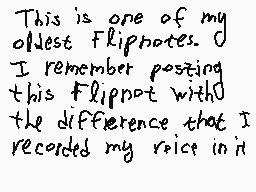 This is one of my
oldest Flipnotes.
I remember posting
this Flipnot with
the difference that I
recorded my voice in it